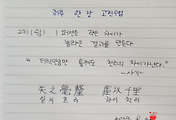 하루 한 장 고전수업
231(월) 1 퍼센트 작은 차이가
놀라운 결과를 만든다
" 터럭만큼만 틀려도 천리의 차이가 난다. "
- 사기 -
失之毫釐 差以千里
실 지 호 리 차 이 천 리